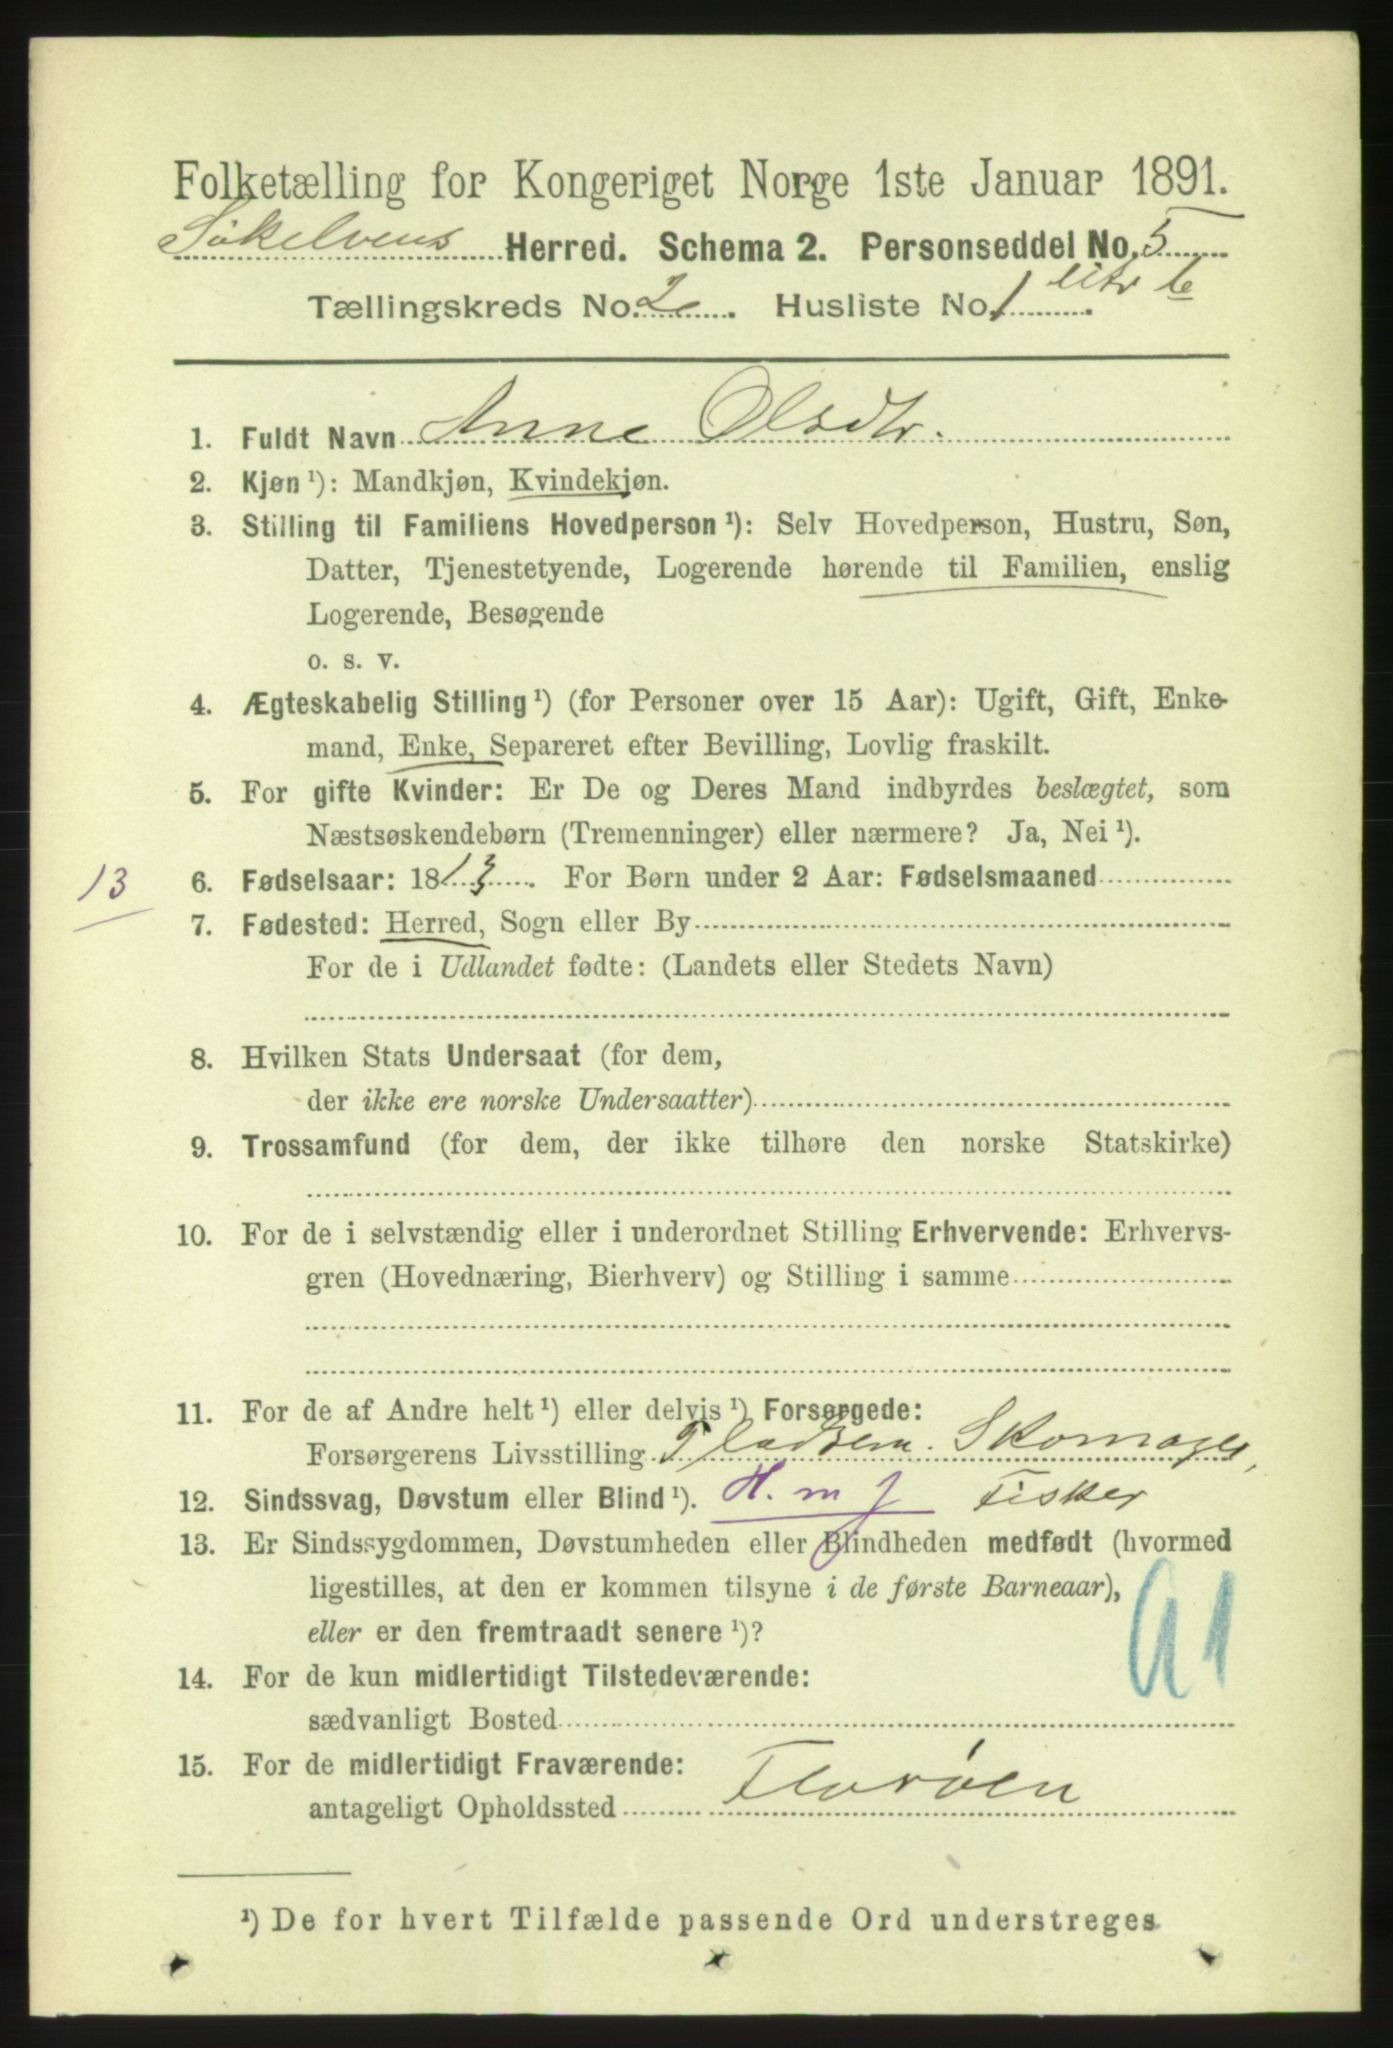 Folketælling for Kongeriget Norge 1ste Januar 1891.
Søkelvens Herred. Schema 2. Personseddel No. 5
Tællingskreds No. 2. Husliste No. 1 litr b
1. Fuldt Navn Anne Olsdtr.
2. Kjøn ¹): Mandkjøn, Kvindekjøn.
3. Stilling til Familiens Hovedperson ¹): Selv Hovedperson, Hustru, Søn,
Datter, Tjenestetyende, Logerende hørende til Familien, enslig
Logerende, Besøgende
o. s. v.
4. Ægteskabelig Stilling ¹) (for Personer over 15 Aar): Ugift, Gift, Enke-
mand, Enke, Separeret efter Bevilling, Lovlig fraskilt.
5. For gifte Kvinder: Er De og Deres Mand indbyrdes beslægtet, som
Næstsøskendebørn (Tremenninger) eller nærmere? Ja, Nei ¹).
13 6. Fødselsaar: 1813. For Børn under 2 Aar: Fødselsmaaned
7. Fødested: Herred, Sogn eller By
For de i Udlandet fødte: (Landets eller Stedets Navn)
8. Hvilken Stats Undersaat (for dem,
der ikke ere norske Undersaatter)
9. Trossamfund (for dem, der ikke tilhøre den norske Statskirke)
10. For de i selvstændig eller i underordnet Stilling Erhvervende: Erhvervs-
gren (Hovednæring, Bierhverv) og Stilling i samme
11. For de af Andre helt ¹) eller delvis ¹) Forsørgede:
Forsørgerens Livsstilling Pladsem. Skomager,
12. Sindssvag, Døvstum eller Blind ¹). H. m f Fisker
13. Er Sindssygdommen, Døvstumheden eller Blindheden medfødt (hvormed
ligestilles, at den er kommen tilsyne i de første Barneaar),
eller er den fremtraadt senere ¹)?
14. For de kun midlertidigt Tilstedeværende:
sædvanligt Bosted
15. For de midlertidigt Fraværende:
antageligt Opholdssted Florøen
¹) De for hvert Tilfælde passende Ord understreges